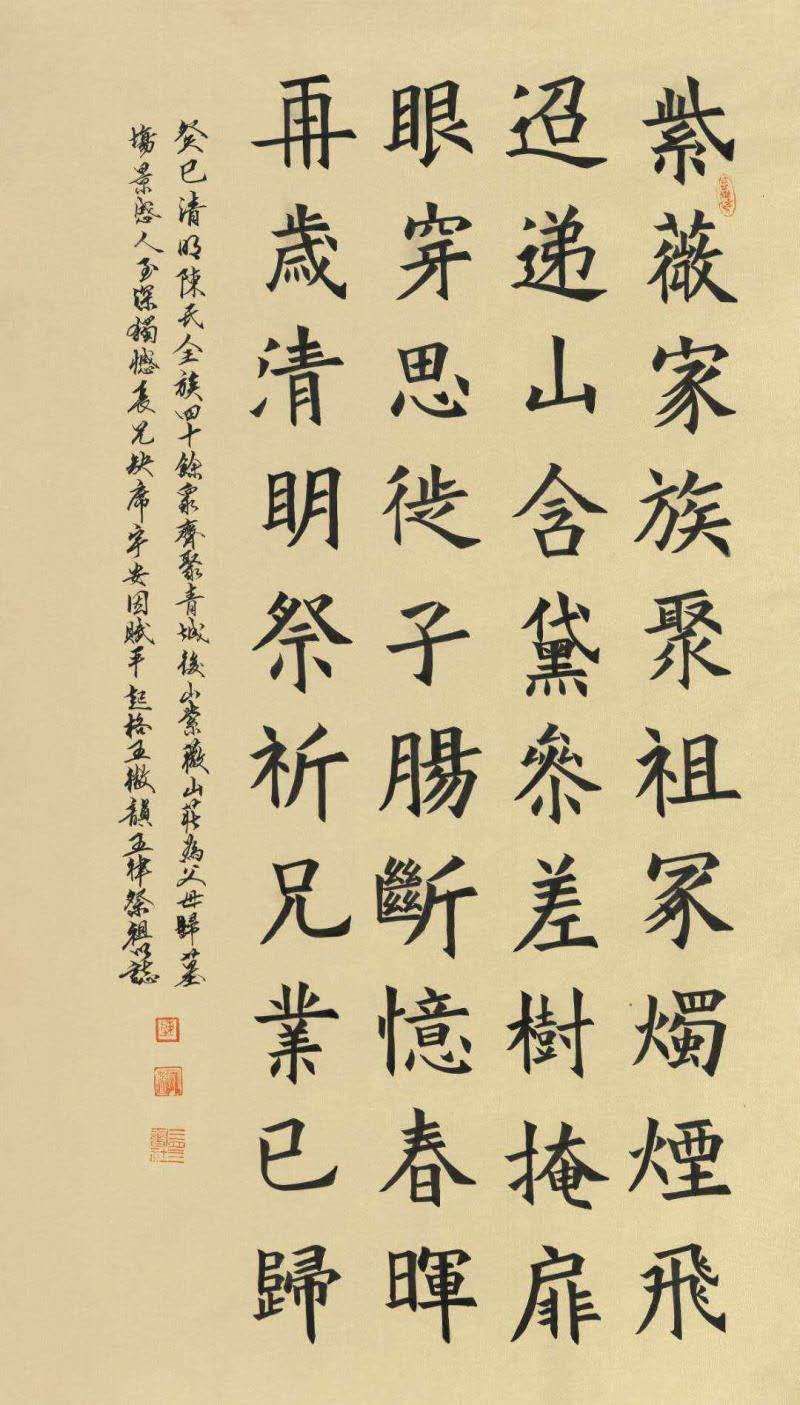 紫薇家族聚祖冢燭煙飛
迢递山含黛叅差樹掩扉
眼穿思徙子腸斷憶春暉
再歲清明祭祈兄業已歸
癸巳清明陳氏全族四十餘衆齊聚青城後山紫薇山莊為父母歸墓
塲景感人至深獨憾長兄缺席牢安因賦平起格五微韻五律祭祖以誌